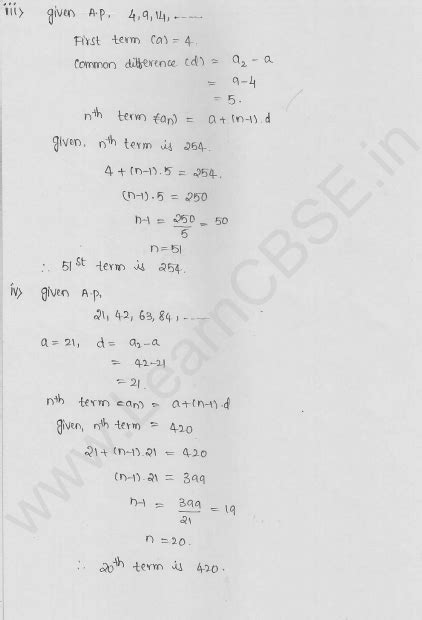 iii) given A.P. 4, 9, 14, ........
First term (a) = 4.
Common difference (d) = a₂ - a
= 9-4
= 5.
nth term (an) = a + (n-1).d
given, nth term is 254.
4 + (n-1).5 = 254.
(n-1).5 = 250
n-1 = 250/5 = 50
n = 51
∴ 51st term is 254.
iv) given A.P,
21, 42, 63, 84, ........
a = 21, d = a₂-a
= 42-21
= 21.
nth term (an) = a+(n-1).d
given, nth term = 420
21+(n-1).21 = 420
(n-1).21 = 399
n-1 = 399/21 = 19
n = 20.
∴ 20th term is 420.
www.LearnCBSE.in